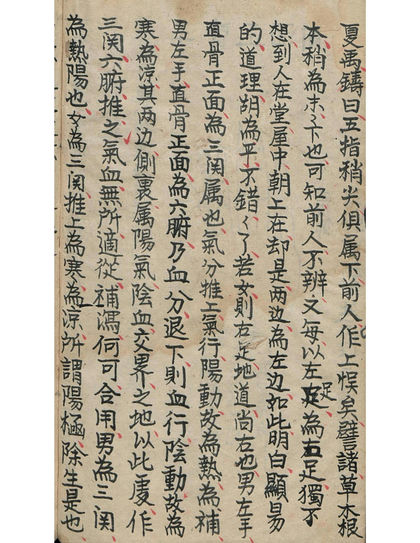 夏禹鑄曰五指稍尖俱属下前人作上悮矣譬諸草木根
本稍為末下也可知前人不辨又每以左足為五足獨不
想到人在堂屋中朝上在却是两边為左边如此明白顯易
的道理朔為平才錯々了若女則左足地道尚右也男左手
直骨正面為三関属也氣分推上氣行陽動故為熱為補
男左手直骨正面為六腑乃血分退下則血行陰動故為
寒為凉其两边側裏属陽氣陰血交界之地以此處作
三関六腑推之氣血無所適從補瀉何可合用男為三関
為熱陽也女為三関推上為寒為凉所謂陽極除生是也